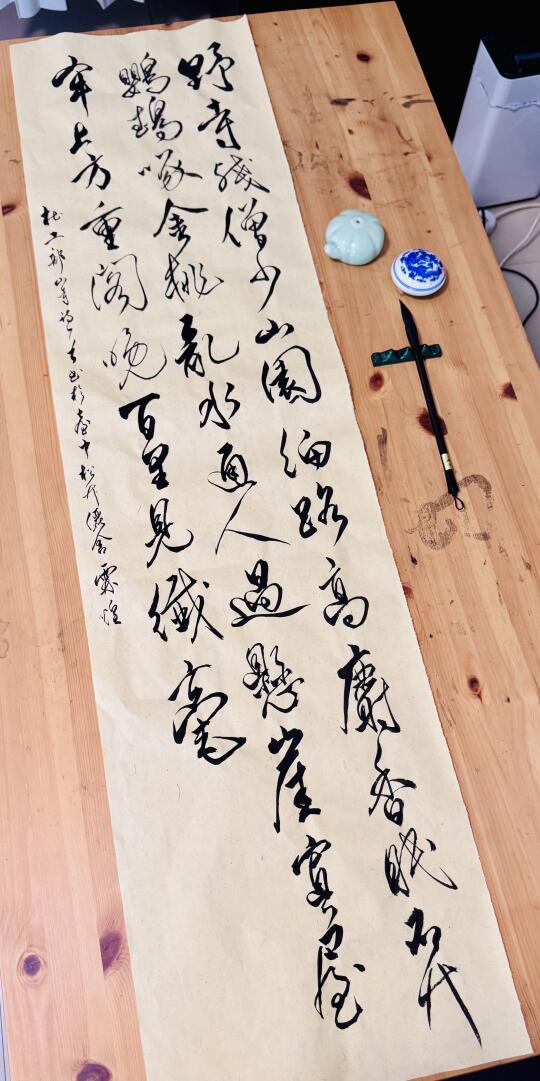 野寺殘僧少山園細路高麝香眠石竹
鸚鵡啄金桃亂水通人過懸崖置屋
牢上方重閣晚百里見纖毫
杜工部山寺詩書於臺中松竹舍